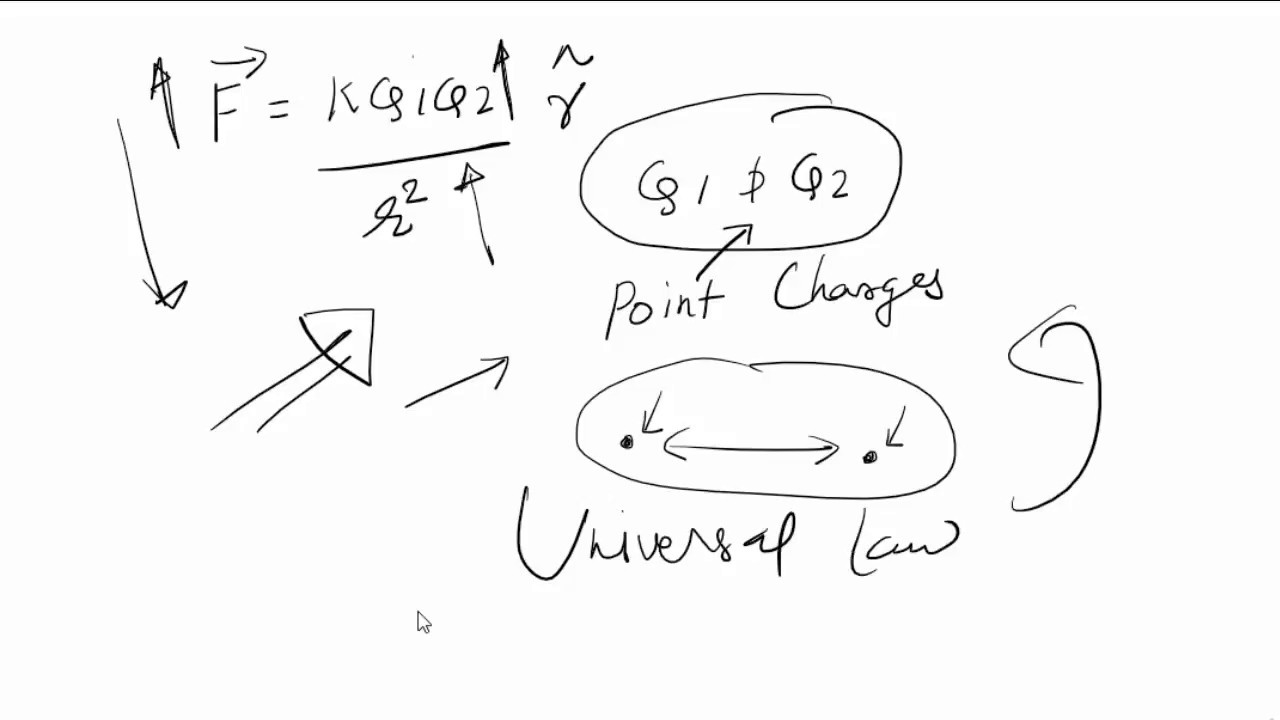 F⃗ = KQ1Q2 r̂
r²
Q1 & Q2
Point Charges
Universal Law